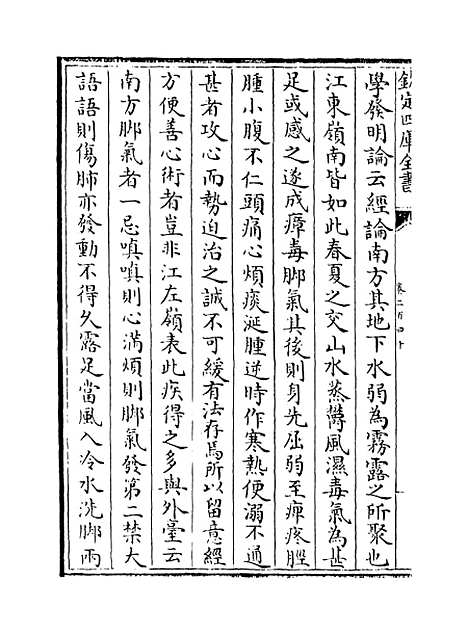 欽定四庫全書
卷二百四十
學發明論云經論南方其地下水弱為霧露之所聚也
江東嶺南皆如此春夏之交山水蒸鬱風濕毒氣為甚
足或感之遂成瘴毒脚氣其後則身先屈弱至痺疼脛
腫小腹不仁頭痛心煩痰涎腫逆時作寒熱便溺不通
甚者攻心而勢迫治之誠不可緩有法存焉所以留意經
方便善心術者豈非江左嶺表此疾得之多與外臺云
南方脚氣者一忌嗔嗔則心滿煩則脚氣發第二禁大
語語則傷肺亦發動不得久露足當風入冷水洗脚兩